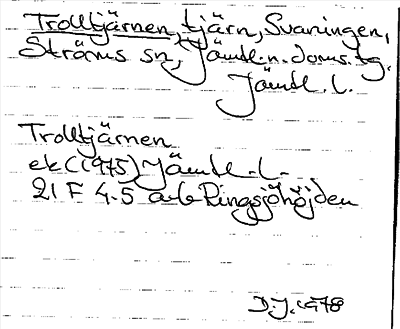 Trolltjärnen, tjärn, Svaningen,
Ströms sn, Jämtl. n. doms. tg.
Jämtl. l.
Trolltjärnen
ek (1975) Jämtl. l.
21 F 4-5 a-b Ringsjöhöjden
D.J. 1978